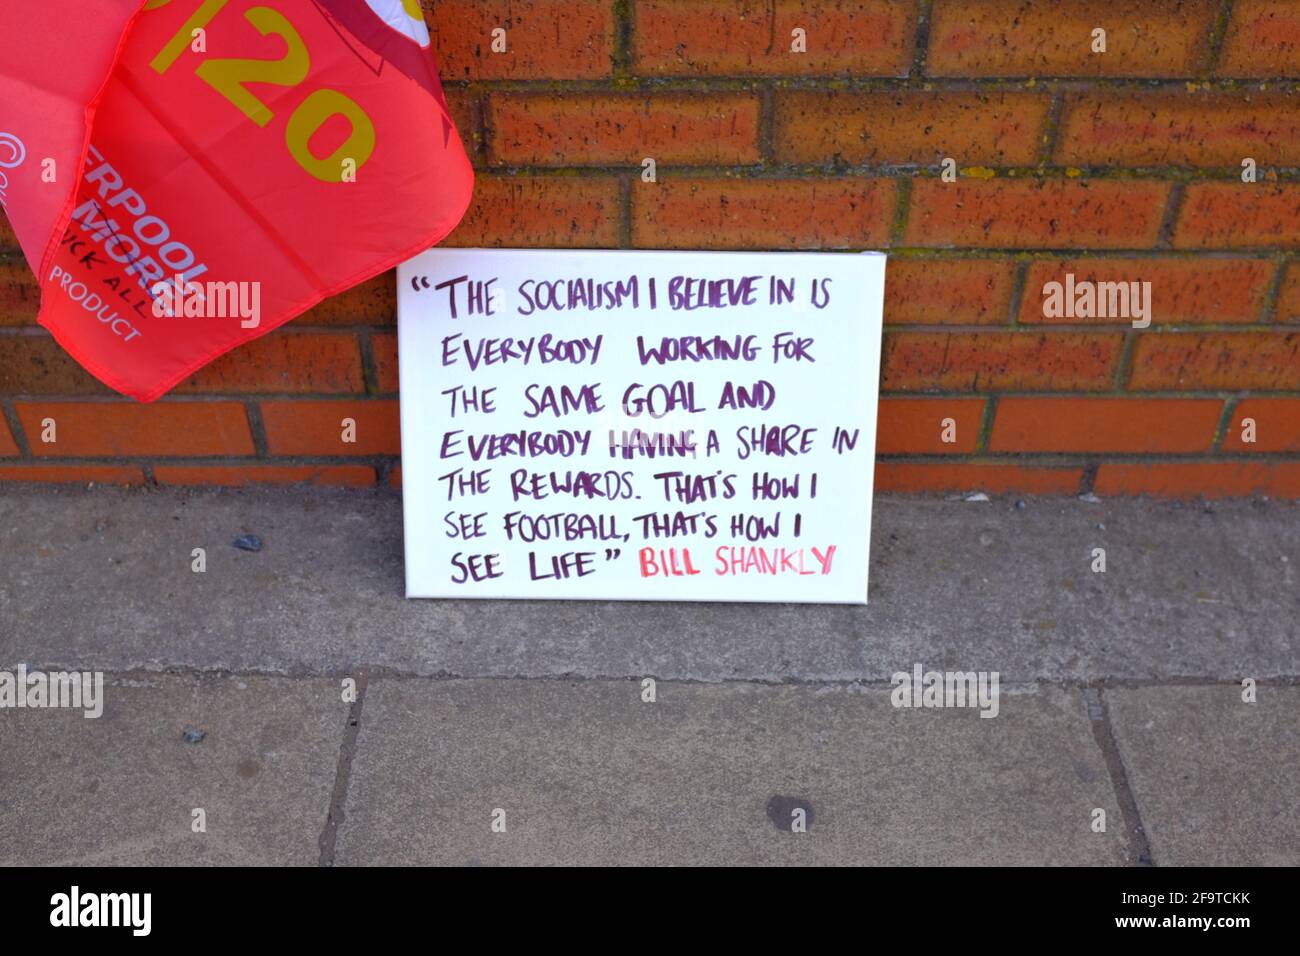 |20
20
ERPOOL.
MORE.
ALL
PRODUCT
“THE SOCIALISM I BELIEVE IN IS
EVERYBODY WORKING FOR
THE SAME GOAL AND
EVERYBODY HAVING A SHARE IN
THE REWARDS. THAT'S HOW I
SEE FOOTBALL, THAT'S HOW I
SEE LIFE” BILL SHANKLY
alamy
alamy
Image ID: 2F9TCKK
www.alamy.com